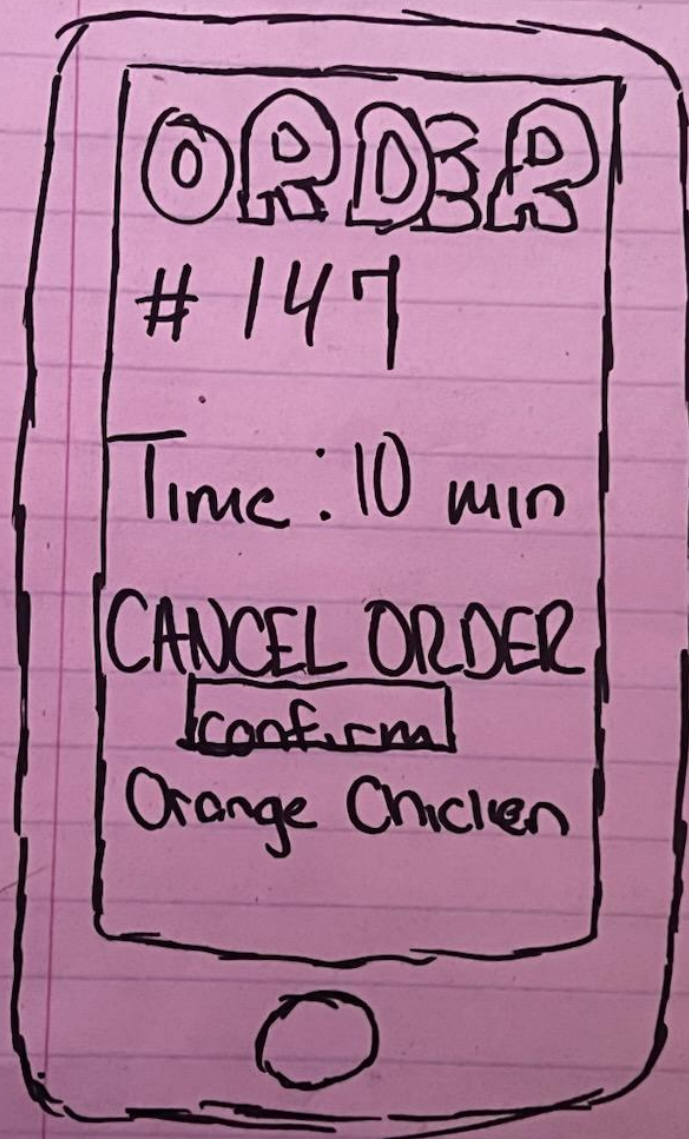 ORDER
# 147
Time : 10 min
CANCEL ORDER
confirm
Orange Chicken